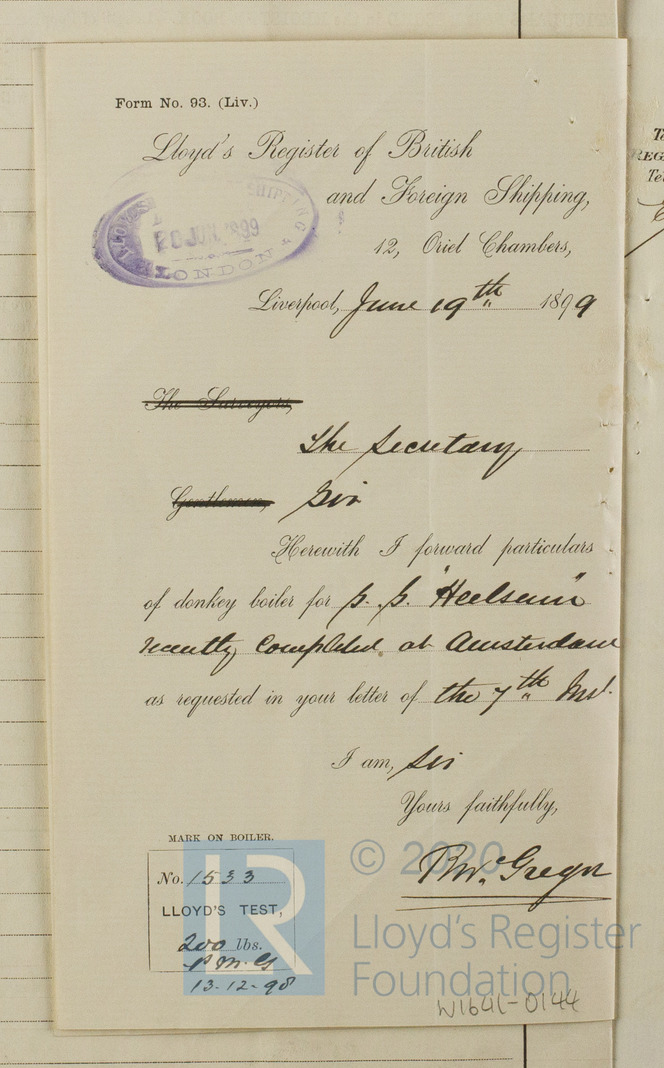 Form No. 93. (Liv.)
Lloyd's Register of British
and Foreign Shipping,
SHIPPING
20 JUN. 1899
LONDON
12, Oriel Chambers,
Liverpool, June 19th 1899
The Surveyors,
The Secretary
Gentlemen, Sir
Herewith I forward particulars
of donkey boiler for s.s. "Heelsum"
recently completed at Amsterdam
as requested in your letter of the 7th Inst.
I am, Sir
Yours faithfully,
McGregor
MARK ON BOILER.
No. 1533
LLOYD'S TEST,
200 lbs.
P McG
13.12.98
LR
© 2020
Lloyd's Register
Foundation
W1641-0144
REG